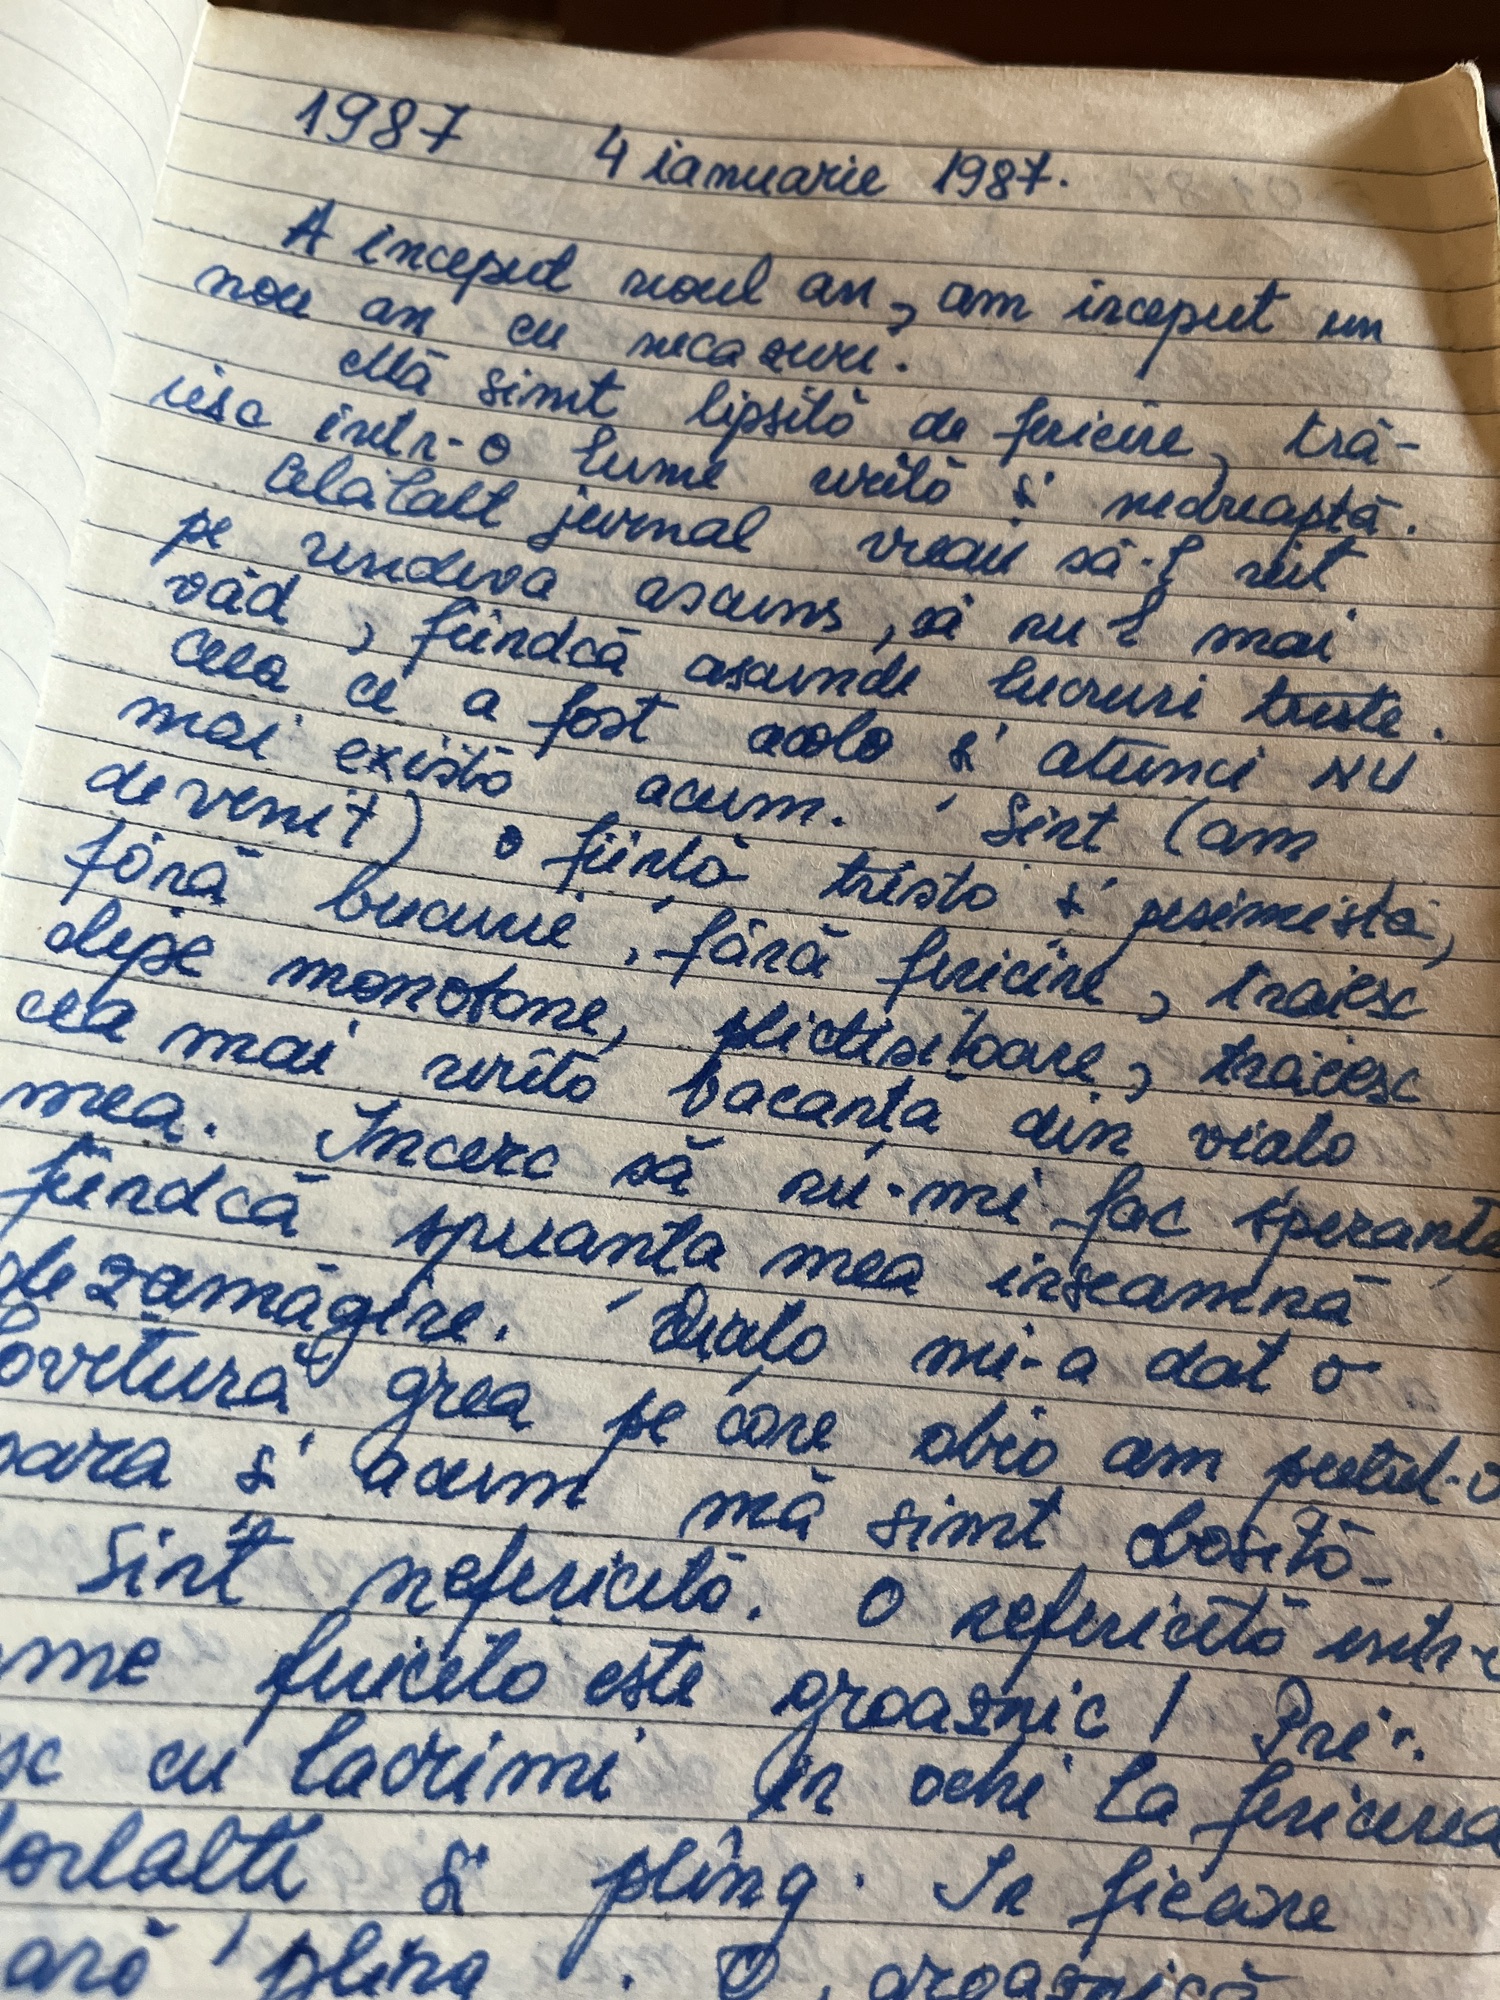 1987 4 ianuarie 1987.
A inceput noul an, am inceput un
nou an cu necazuri.
Mă simt lipsită de fericire, tră-
iesc intr-o lume urîtă și nedreaptă.
Celălalt jurnal vreau să-l uit
pe undeva ascuns, să nu-l mai
văd, fiindcă ascunde lucruri triste.
Ceea ce a fost acolo și atunci NU
mai există acum. Sint (am
devenit) o ființă tristă și pesimistă,
fără bucurie, fără fericire, traiesc
clipe monotone, plictisitoare, traiesc
cea mai urîtă vacanța din viața
mea. Incerc să nu-mi fac speranțe
fiindcă speranța mea inseamnă
dezamăgire. Viața mi-a dat o
lovitură grea pe care abia am putut-o
para și acum mă simt obosită.
Sint nefericită. O nefericită intr-o
me fericită este groaznic! Priv.
sc cu lacrimi in ochi la fericirea
lorlalti și plîng. In ficare
ară plîng. O, groaznică